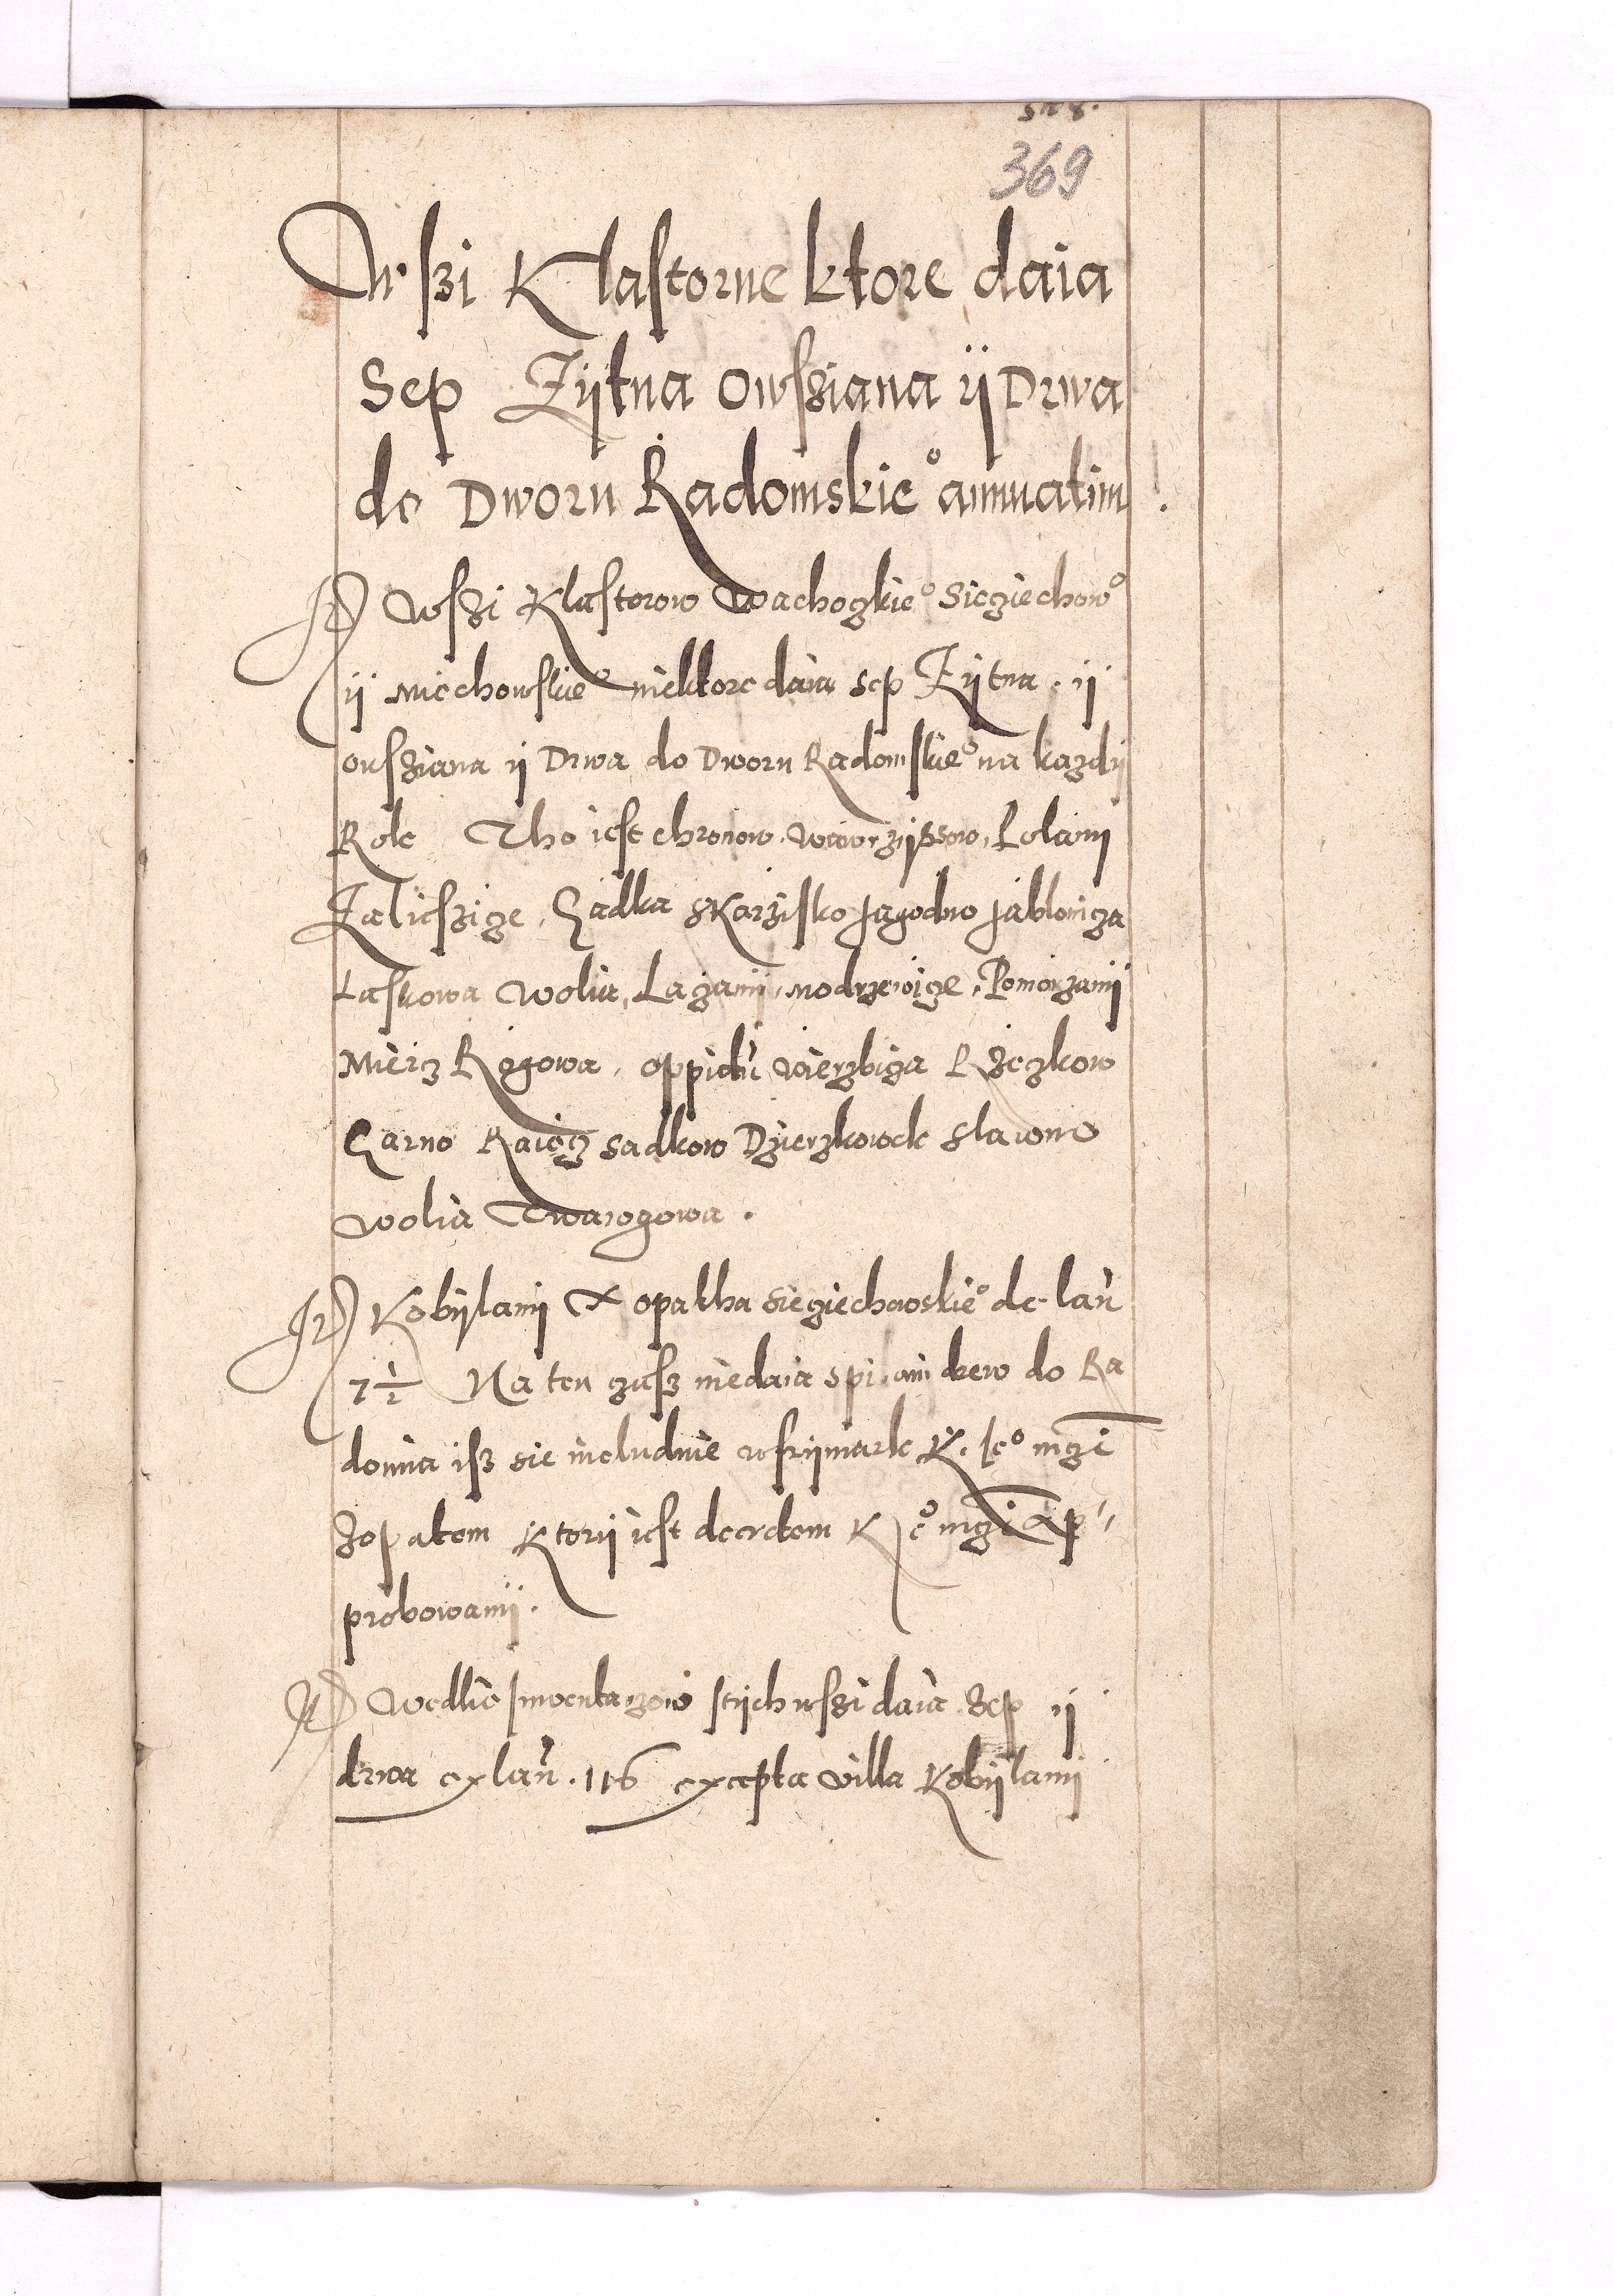 369
Wszi Klastorne ktore daia
Sep Zijtna Owsziana ij Drwa
do Dworu Radomskie° annuatim
It) Wszi Klastorow Wachogkie° Sieczechow°
ij Miechowskie° niektore daia sep Zijtna. ij
owsziana ij Drwa do Dworu Radomskie° na kazdij
Rok Tho iest chronow. Wawrzijszow, Kolanij
Zalieszicze, Gadka Skarzisko Jagodno Jablonica
Laskowa Wolia, Lazanij, Modrzewicze, Pomorzanij
Mierz Rogowa, oppidu Wierzbicza Rzeczkow
Garno Raiecz Sadkow Dzierzkowek Slawno
Wolia Twarogowa.
It) Kobijlanij X opatha Sieczechowskie° de lan
7½ Na ten czasz niedaia spi ani drew do Ra
domia isz sie includuie wfrijmark K. Je° mczi
zopatem Ktorij iest decretem K Je° mczi ap
probowanij.
It) Wedlie Inwentarzow stijch wszi daia Zep ij
drwa ex lan. 116 excepta villa Kobijlanij